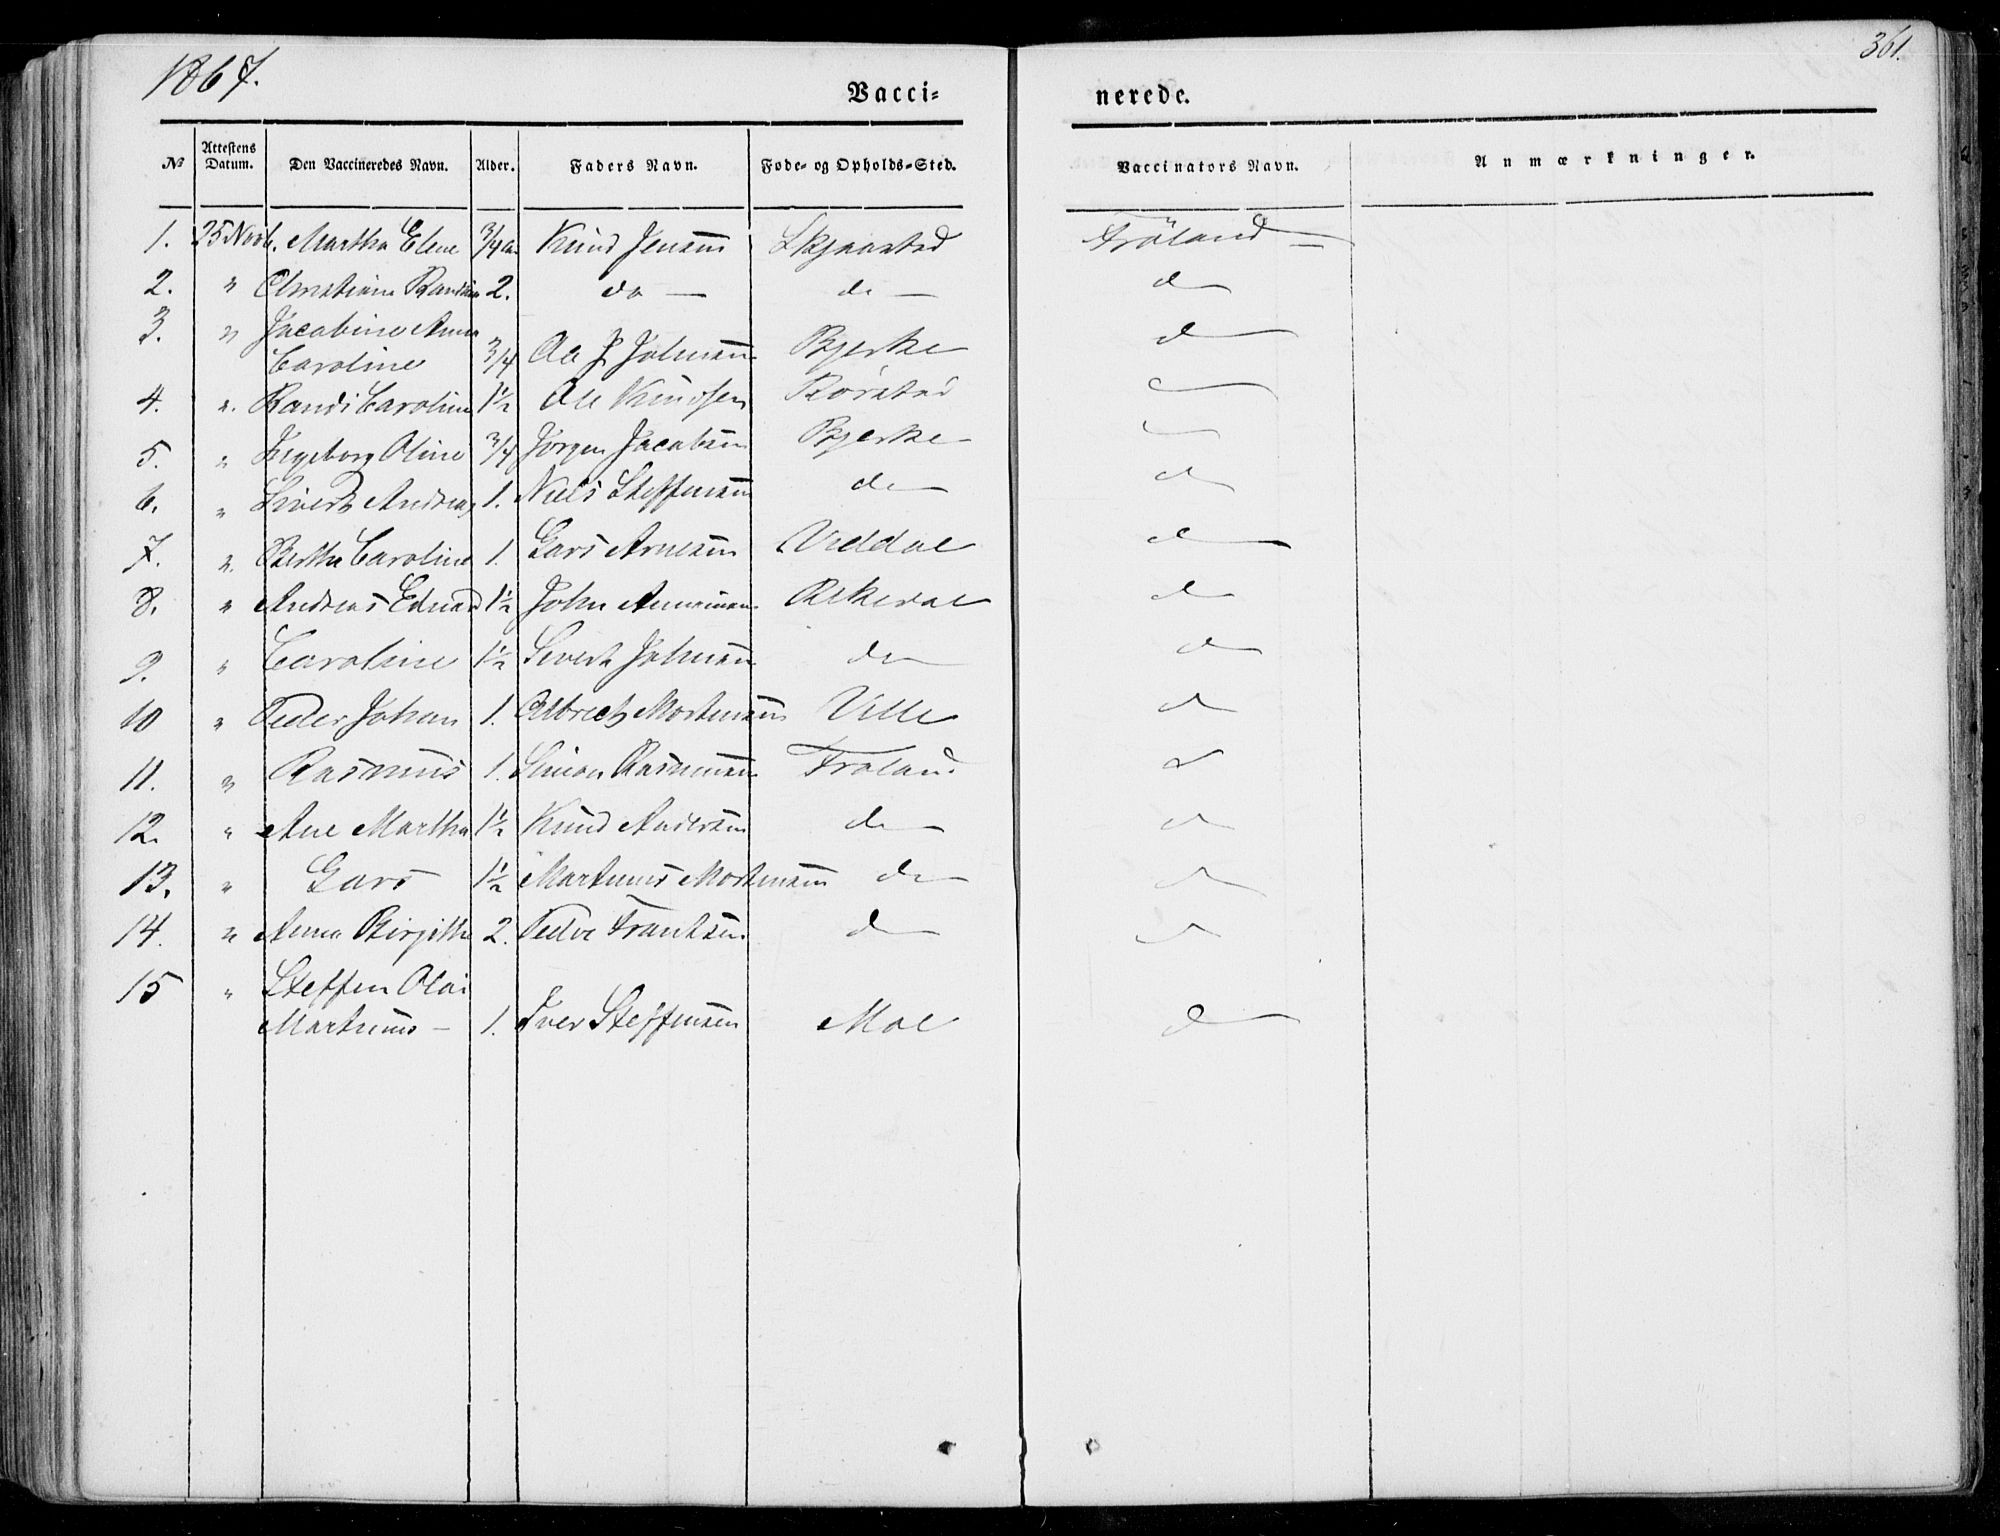 1867.
361.
Vacci-
nerede.
№ Attestens Datum. Den Vaccineredes Navn. Alder. Faders Navn. Føde- og Opholds-Sted. Vaccinators Navn. Anmærkninger.
1. 25 Novb. Martha Elene 3/4 Knud Jensen Skjaastad Fröland —
2. " Christiane 2. do — do — do
3. " Jacobine Anna
Caroline 3/4 Ole J Johnsen Bjerke do
4. " Randi Caroline 1½ Ole Knudsen Rørstad
5. " Ingeborg Oline 3/4 Jørgen Jacobsen Bjerke
6. " Sivert Andreas 1. Niels Steffensen do do
7. " Bertha Caroline 1. Lars Arnesen Viddal do
8. " Andreas Eduard 1½ John do
9. " Caroline 1½ Sivert Johnsen do do
10 " Peder Johan 1. Albrecht Mortensen Ville do
11. " Rasmus 1. Simon Rasmussen Froland do
12. " Ane Martha 1½ Knud Andersen do do
13. " Lars 1½ Martinus Mortensen do do
14. " Anna Birgitte 2. Peder Frantsen do do
15 " Steffen Olai
Martinus — 1. Iver Steffensen Moe do